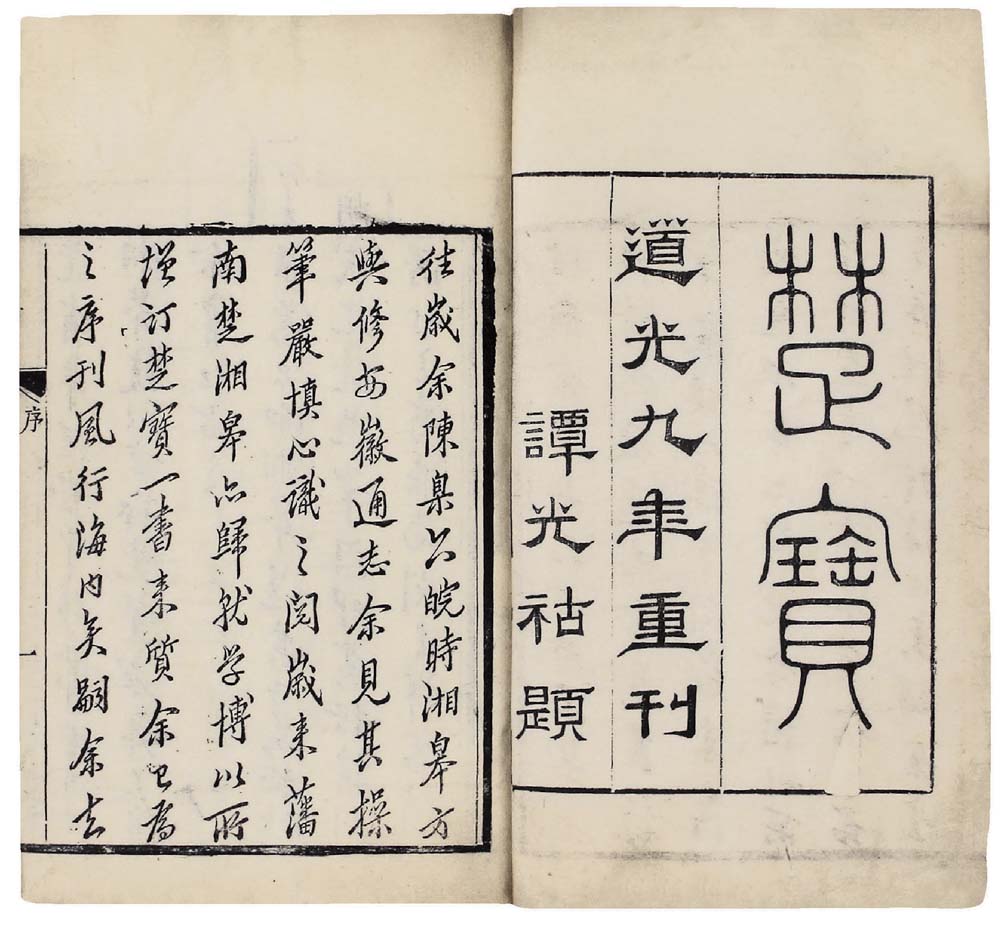 楚寶
道光九年重刊
譚光祜題
往歲余陳臬公皖時湘皋方
與修安徽通志余見其操
筆嚴慎心識之閱歲来藩
南楚湘皋亦歸就学博以所
增订楚寶一書来質余已為
之序刊風行海内矣嗣余去
序
一